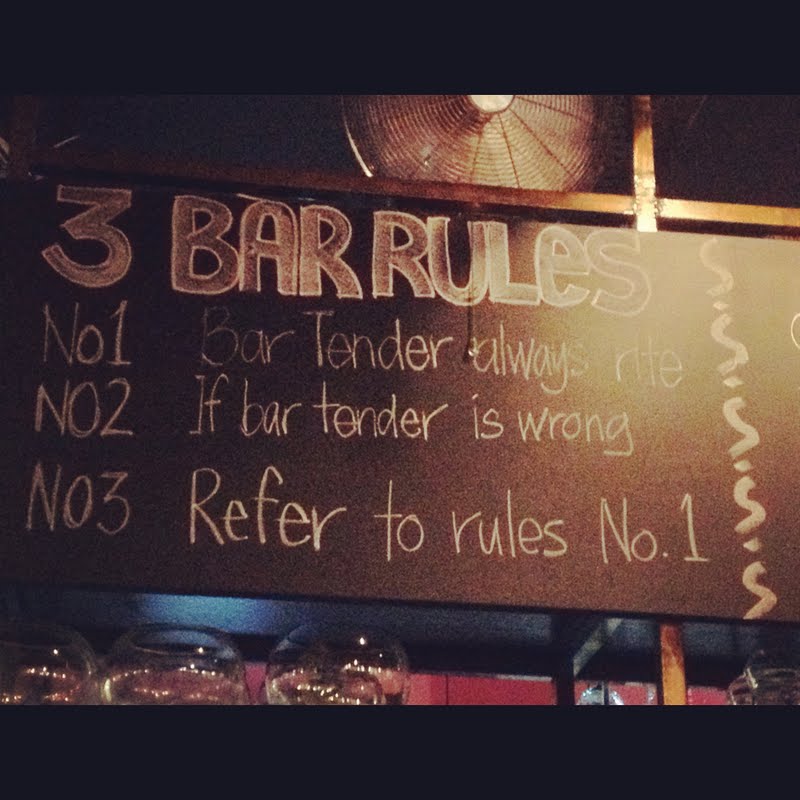 3 BAR RULeS
No1 Bar Tender always rite
NO2 If bar tender is wrong
NO3 Refer to rules No.1